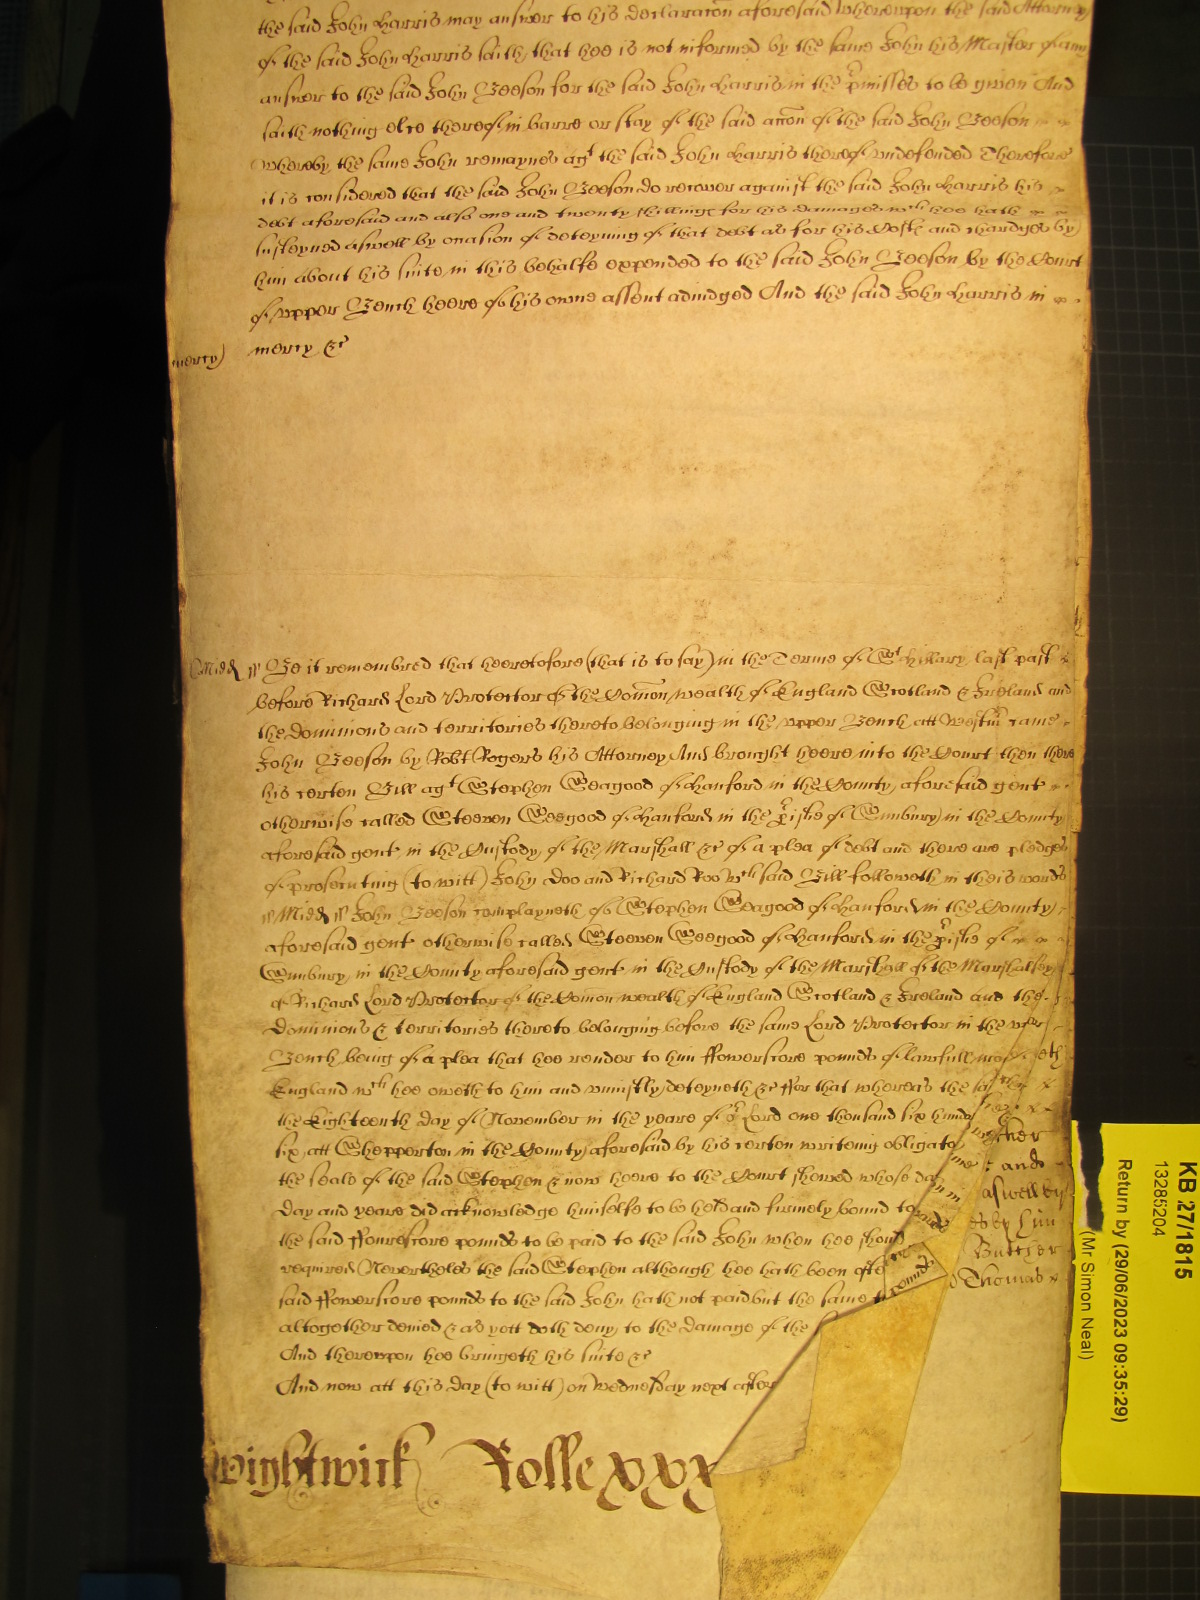 the said John Harris may answer to his declaracōn aforesaid Whereupon the said Attorney
of the said John Harris saith that hee is not informed by the same John his Master of any
answer to the said John Beeson for the said John Harris in the p̄misses to be given And
saith nothing else thereof in barre or stay of the said accōn of the said John Beeson
whereby the same John remaynes agt the said John Harris thereof undefended Therefore
it is considered that the said John Beeson do recover against the said John Harris his
debt aforesaid and also one and twenty shillings for his damages wch hee hath
susteyned aswell by occasion of deteyning of that debt as for his Costs and chardges by
him about his suite in this behalfe expended to the said John Beeson by the Court
of upper Bench heere of his owne assent adiudged And the said John Harris in
mercy
mercy &c
Midd ss Be it remembred that heeretofore (that is to say) in the Terme of St Hillary last past
before Richard Lord Protector of the Com̄on wealth of England Scotland & Ireland and
the dominions and territories thereto belonging in the upper Bench att Westm̄ came
John Beeson by Robt Rogers his Attorney And brought heere into the Court then there
his certen Bill agt Stephen Seagood of Hanford in the County aforesaid gent
otherwise called Steeven Seegood of Hanford in the p̄ishe of Sunbury in the County
aforesaid gent in the Custody of the Marshall &c of a plea of debt and there are pledges
of prosecuting (to witt) John Doo and Richard Roo wch said Bill followeth in theis words
ss Midd ss John Beeson complayneth of Stephen Seagood of Hanford in the County
aforesaid gent otherwise called Steeven Seegood of Hanford in the p̄ishe of
Sunbury in the County aforesaid gent in the Custody of the Marshall of the Marshalsey
of Richard Lord Protector of the Com̄on wealth of England Scotland & Ireland and the
Dominions & territories thereto belonging before the same Lord Protector in the upper
Bench being of a plea that hee render to him ffowerscore pounds of lawfull
England wch hee oweth to him and uniustly deteyneth &c ffor that whereas the
the Eighteenth day of November in the yeare of or Lord one thousand six hund
six att Shepperton in the County aforesaid by his certen writeing obligato
the seale of the said Stephen & now heere to the Court shewed whose da
day and yeare did acknowledge himselfe to be held and firmely bound to
the said ffowrescore pounds to be paid to the said John when hee should
required Nevertheles the said Stephen although hee hath been ofte
said ffowerscore pounds to the said John hath not paid but the same t
altogether denied & as yett doth deny to the damage of the
And thereupon hee bringeth his suite &c
And now att this day (to witt) on Wednesday next after
and
aswell by
Butcher
Thomas
pounds
Wightwick Rolle xxx
KB 27/1815
13285204
Return by (29/06/2023 09:35:29)
(Mr Simon Neal)